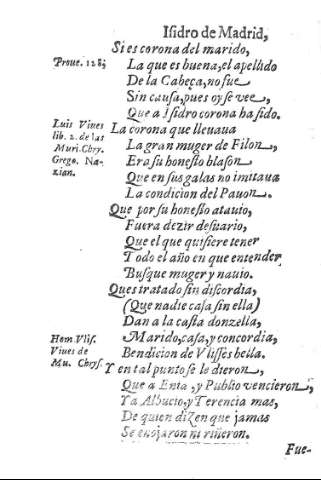 Isidro de Madrid,
Si es corona del marido,
Proue. 128;
La que es buena, el apellido
De la Cabeça, no fue
Sin causa, pues oy se vee,
Que a Isidro corona ha sido.
Luis Viues
lib. 2. de las
Muri. Chry.
Grego. Na-
zian.
La corona que lleuaua
La gran muger de Filon,
Era su honesto blason
Que en sus galas no imitaua
La condicion del Pauon.
Que por su honesto atauio,
Fuera dezir desuario,
Que el que quisiere tener
Todo el año en que entender,
Busque muger y nauio.
Ques tratado sin discordia,
(Que nadie casa sin ella)
Dan a la casta donzella,
Hom Vlis.
Viues de
Mu. Chrys.
Marido, casa, y concordia,
Bendicion de Vlisses bella.
Y en tal punto se le dieron,
Que a Enia, y Publio vencieron,
Ya Albucio, y Terencia mas,
De quien dizen que jamas
Se enojaron ni riñeron.
Fue-